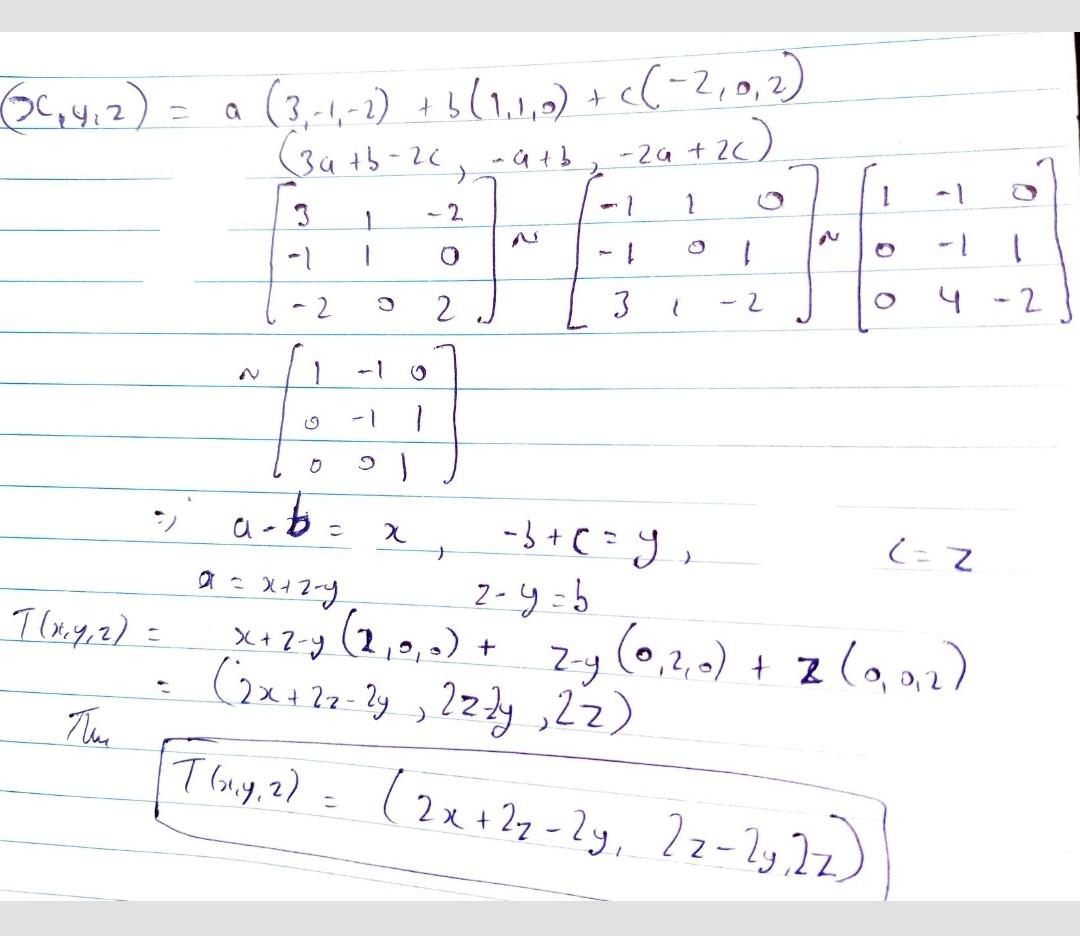 (x,y,z) = a (3,-1,-2) + b(1,1,0) + c(-2,0,2)
(3a+b-2c, -a+b, -2a+2c)
[3 1 -2 ~ [-1 1 0 ~ [1 -1 0
-1 1 0 -1 0 1 0 -1 1
-2 0 2] 3 1 -2] 0 4 -2]
~ [1 -1 0
0 -1 1
0 0 1]
=> a-b = x, -b+c = y, c = z
a = x+z-y z-y = b
T(x,y,z) = x+z-y (2,0,0) + z-y (0,2,0) + z (0,0,2)
= (2x+2z-2y, 2z-2y, 2z)
T(x,y,z) = (2x+2z-2y, 2z-2y, 2z)